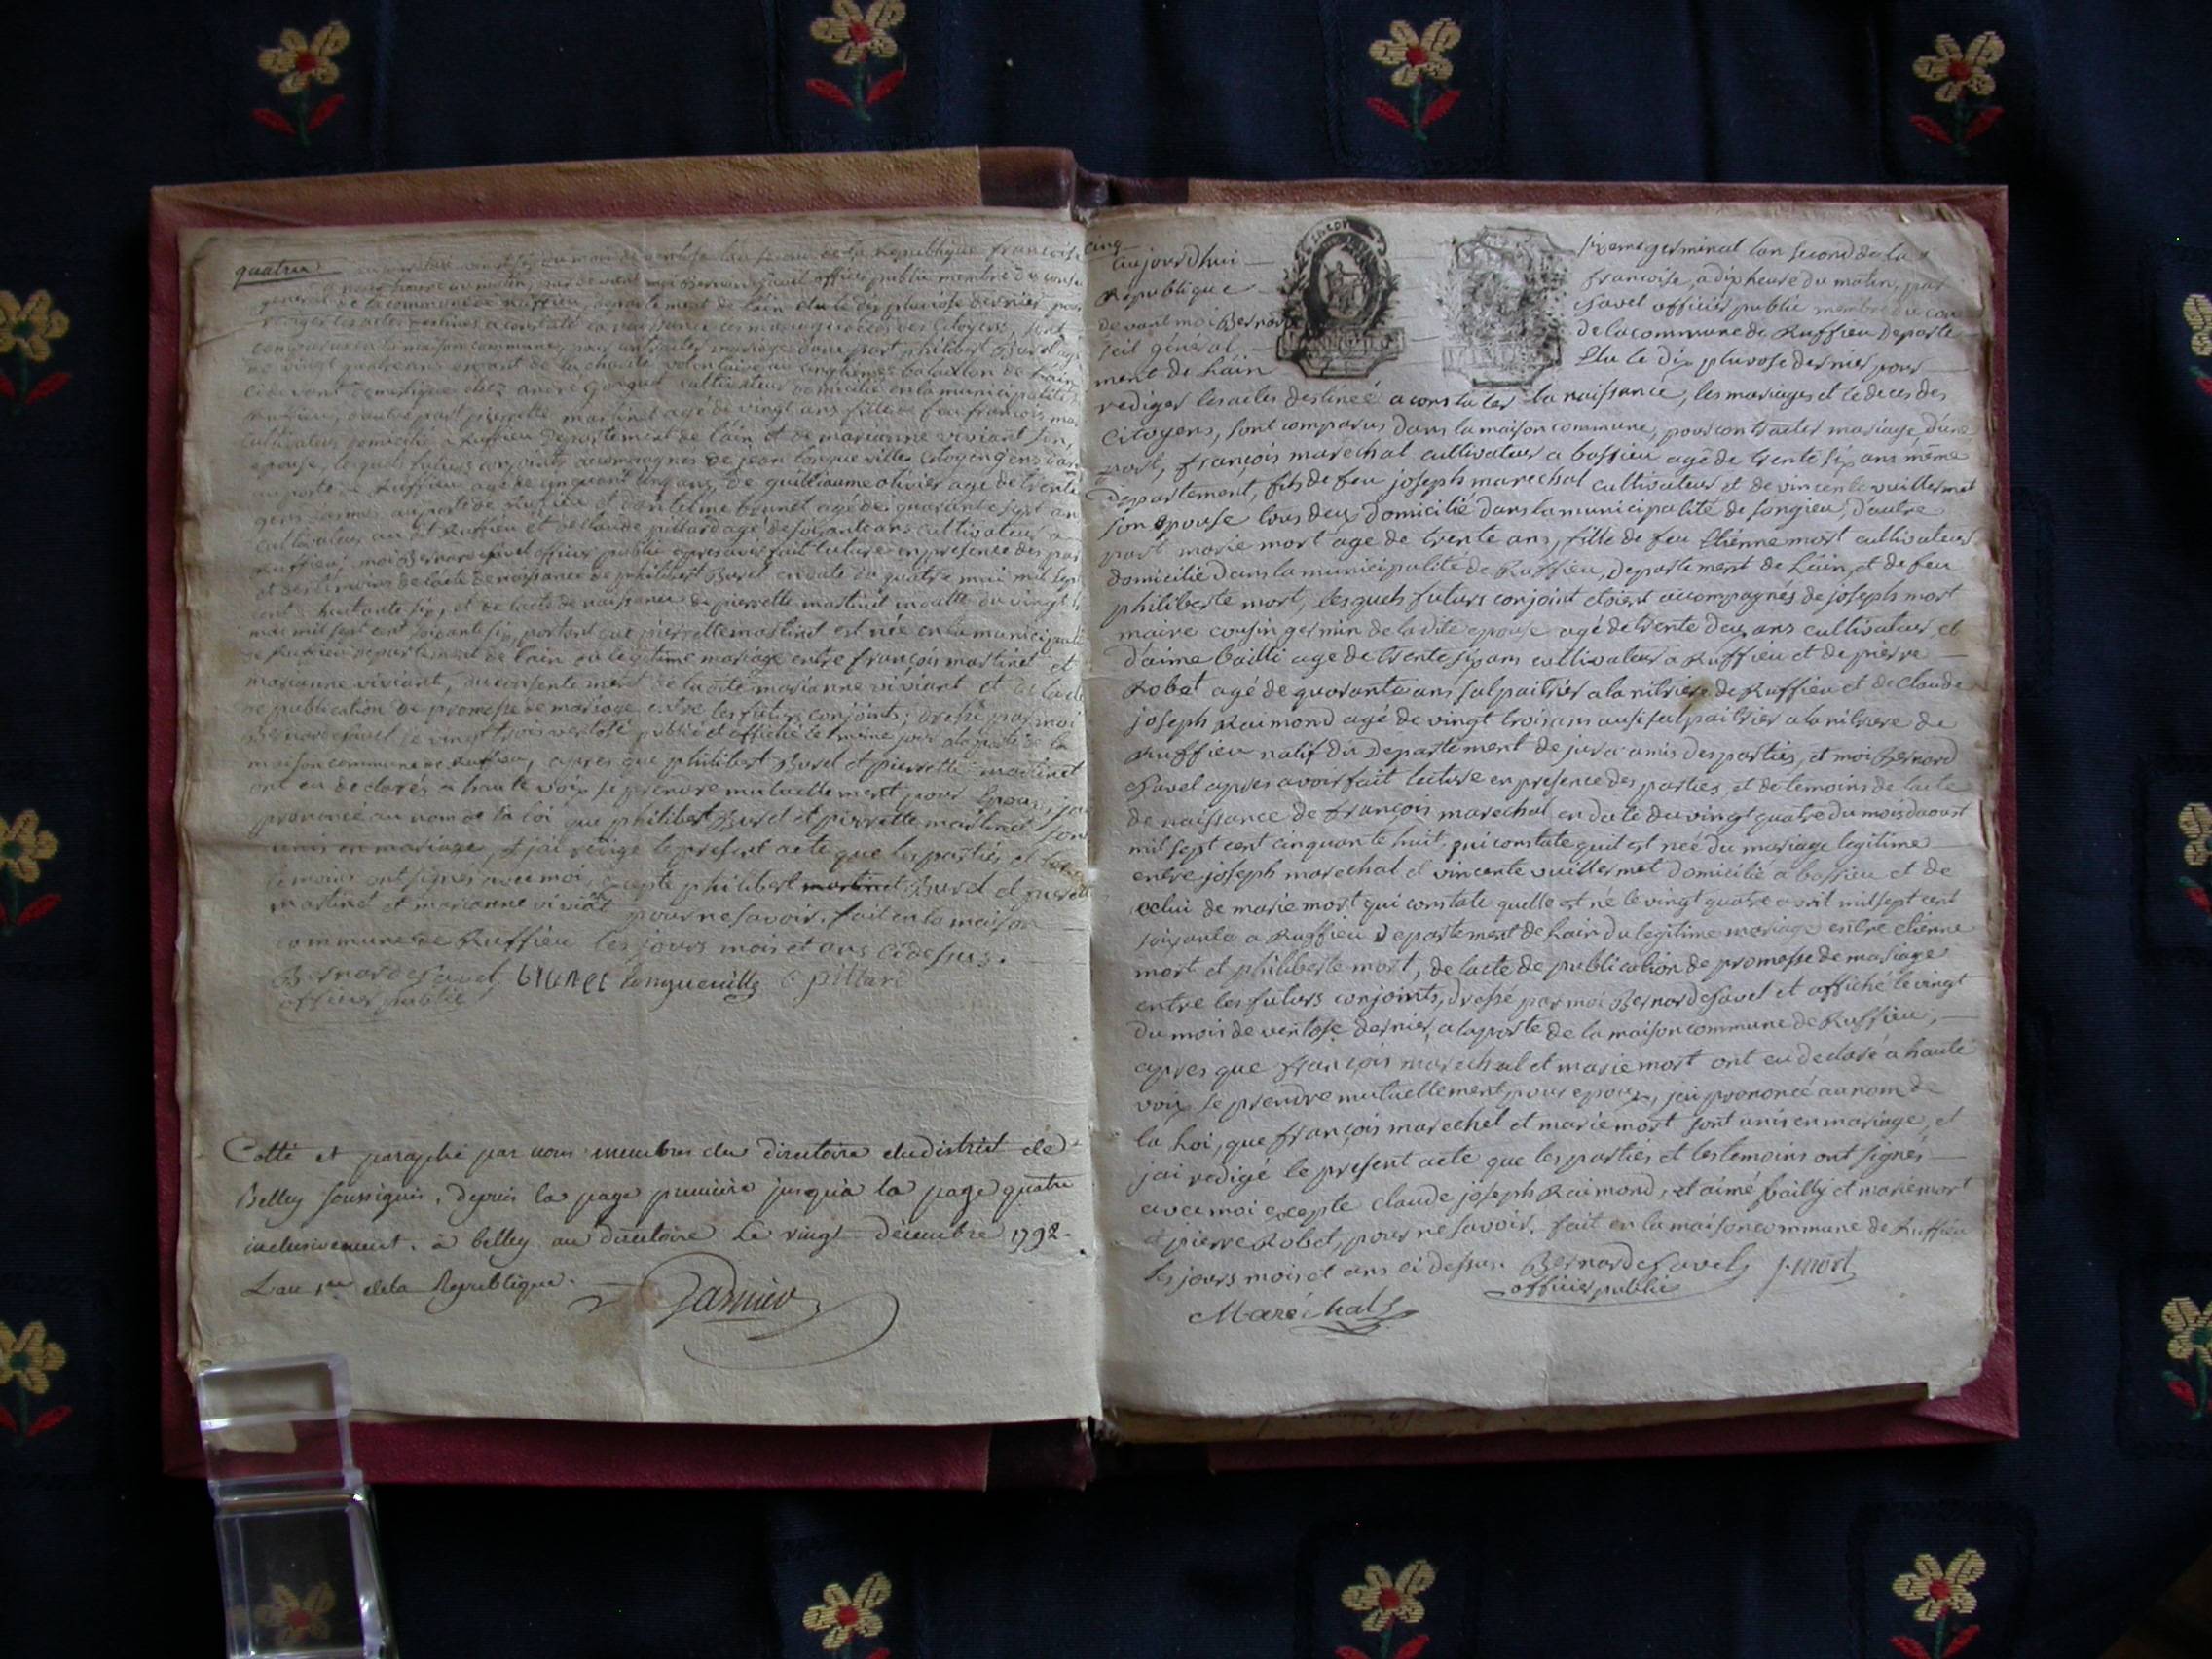 quatrie
du mois de ventose l'an second de la Republique françoise
a neuf heure du matin, par de vant moi Bernard favel officier public membre du conseil
general de la commune de Ruffieu, departement de Lain elu le dix pluviose dernier pour
rediger les actes destinés a constaté la naissance les mariages et deces des Citoyens, sont
comparus en la maison commune, pour contracter mariage d'une part philibert Burel agé
de vingt quatre ans enfant de la charité volontaire au cinquieme bataillon de Lain
ci devant domestique chez andré cultivateur domicilié en la municipalité
Ruffieu, d'autre part pierrette martinet agé de vingt ans fille de feu francois mar
cultivateur domicilié a Ruffieu Departement de l'ain et de marianne viviant son
epouse, lesquels futurs conjoints accompagnés de jean longueville citoyen gens darme
au poste de Ruffieu agé de cinquant cinq ans, de guilliaume olivier agé de trente
gens darme au poste de Ruffieu et d'antelme brunet agé de quarante sept ans
cultivateur au dit Ruffieu et de claude pillard agé de soixante ans cultivateur a
Ruffieu; moi Bernard favel officier public apres avoir fait lecture en presence des par
et des temoins de l'acte de naissance de philibert Burel en date du quatre mai mil sept
cent huitante six, et de l'acte de naissance de pierrette martinet en datte du vingt
mai mil sept cent soixante six, portant que pierrette martinet est née en la municipalité
de Ruffieu departement de l'ain du legitime mariage entre françois martinet et
marianne viviant, du consentement de la dite marianne viviant et de l'acte
de publication de promesse de mariage entre les futurs conjoints; dressé par moi
Bernard favel le vingt trois ventose publié et affiché le même jour a la porte de la
maison commune de Ruffieu, apres que philibert Burel et pierrette martinet
ont eu declarés a haute voix se prendre mutuellement pour Epoux, jai
prononcé au nom de la loi que philibert Burel et pierrette martinet sont
unis en mariage, et jai redigé le present acte que les parties et les
temoins ont signés avec moi, excepte philibert martinet Burel et pierrette
martinet et marianne viviant pour ne savoir. fait en la maison
commune de Ruffieu les jours mois et ans ci dessus.
Bernard favel brunet longueville C. pillard
officier public
Cotté et paraphé par nous membres du directoire du district de
Belley soussignés, depuis la page première jusqu'à la page quatre
inclusivement. à belley au directoire le vingt décembre 1792.
L'an 1er de la Republique.
Garnier
cinq
aujourd'hui sixeme germinal lan second de la
Republique françoise, a dix heure du matin, par
devant moi Bernard favel officier public membre du con
seil général de la commune de Ruffieu departe
ment de Lain Elu le dix pluvose dernier pour
rediger les actes destinée a constater la naissance, les mariages et le deces des
Citoyens, sont comparus dans la maison commune, pour contracter mariage, d'une
part, françois marechal cultivateur a bossieu agé de trente six ans même
departement, fils de feu joseph marechal cultivateur et de vincente vuillermet
son Epouse tous deux domicilié dans la municipalité de songieu, d'autre
part marie mort agé de trente ans, fille de feu Etienne mort cultivateur
domicilié dans la municipalité de Ruffieu, departement de Lain, et de feu
philiberte mort, lesquels futurs conjoint étoient accompagnés de joseph mort
maire cousin germin de la dite epouse agé de trente deux ans cultivateur et
d'aime bailli agé de trente six ans cultivateur a Ruffieu et de pierre
Robat agé de quaranta ans salpaitrier a la nitriere de Ruffieu et de claude
joseph Raimond agé de vingt trois ans ausi salpaitrier a la nitrere de
Ruffieu natif du Departement de jura amis des parties, et moi Bernard
favel apres avoir fait lecture en presence des parties, et de temoins de lacte
de naissance de françois marechal en date du vingt quatre du mois daoust
mil sept cent cinquante huit, qui constate quil est néé du mariage legitime
entre joseph marechal et vincente vuillermet domicilié a bossieu et de
celui de marie mort qui constate quelle est né le vingt quatre avril mil sept cent
soixante a Ruffieu Departement de Lain du legitime mariage entre etienne
mort et philiberte mort, de lacte de publication de promesse de mariage
entre les futurs conjoints, dressé par moi Bernard favel et affiché le vingt
du mois de ventose dernier, a la porte de la maison commune de Ruffieu;
apres que françois marechal et marie mort ont eu declaré a haute
voix se prendre mutuellement pour epoux, jai prononcé au nom de
la Loi, que françois marechel et marie mort sont unis en mariage, et
jai redigé le present acte que les parties et les temoins ont signés
avec moi excepte claude joseph Raimond, et aimé bailly et marie mort
et pierre Robet, pour ne savoir. fait en la maison commune de Ruffieu
les jours mois et ans ci dessus. Bernard favel j. mort
officier public
Maréchal